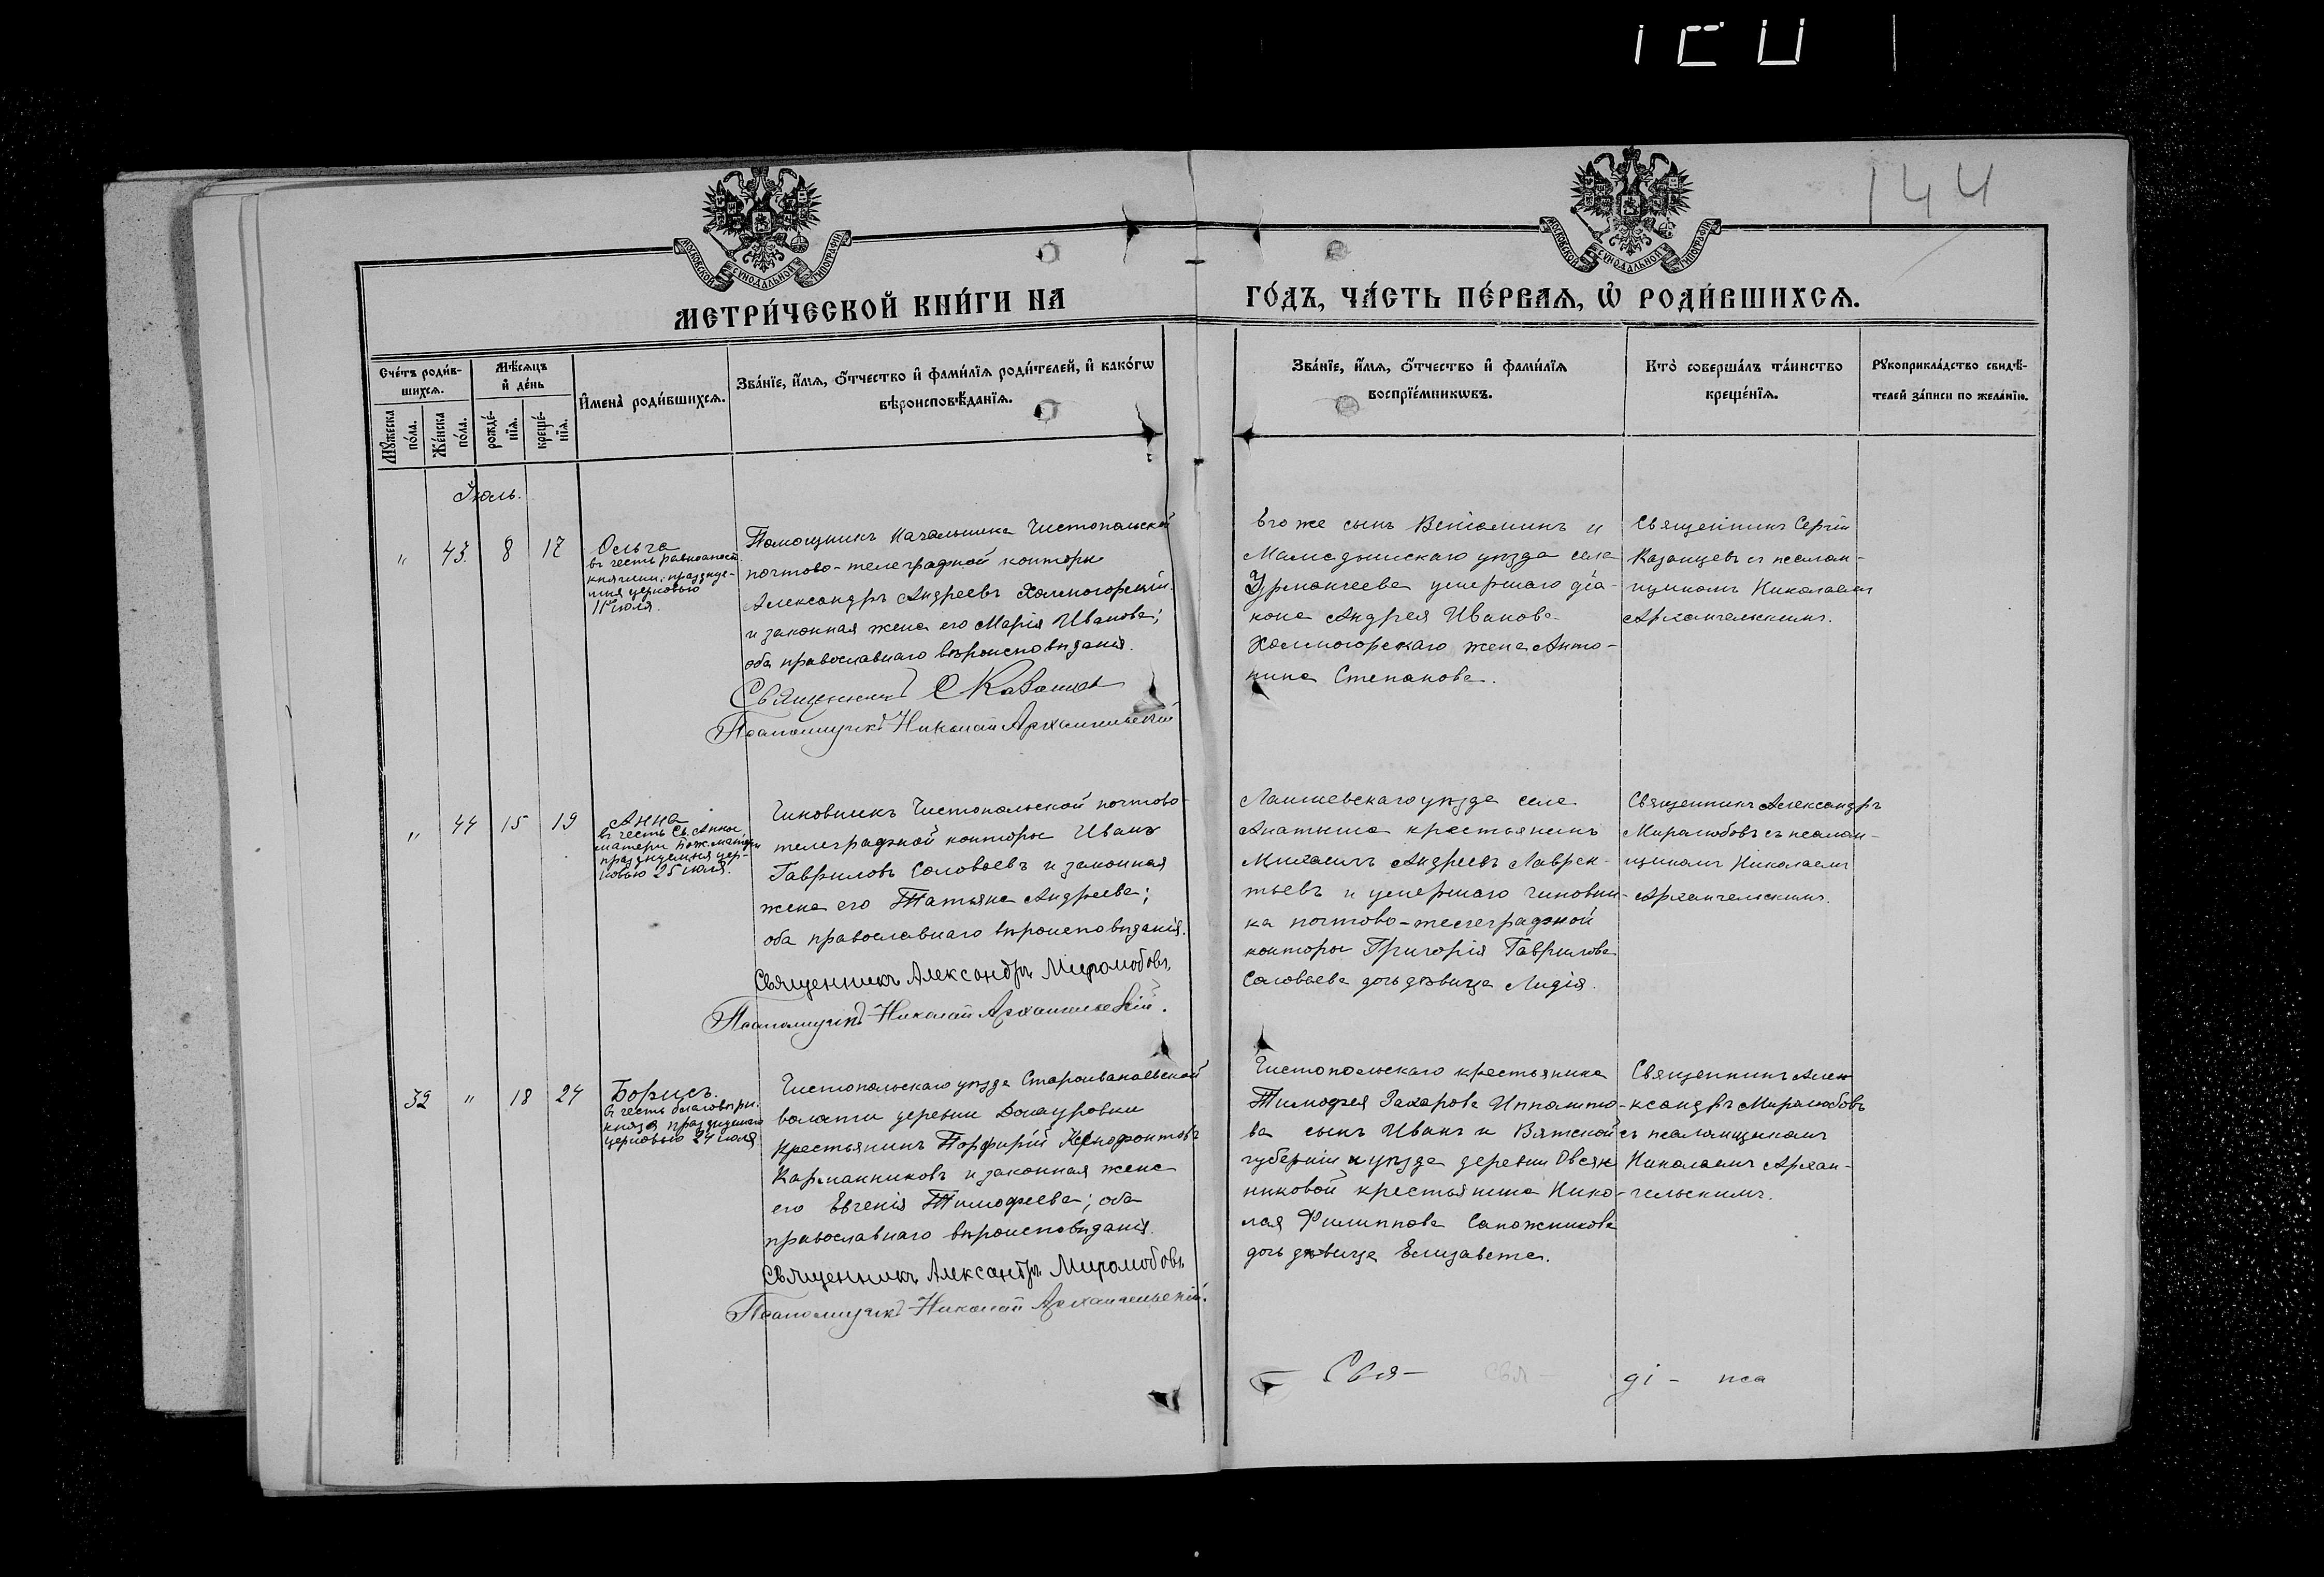 144
МОСКОВСКОЙ СѴНОДАЛЬНОЙ ТИПОГРАФІИ
МОСКОВСКОЙ СѴНОДАЛЬНОЙ ТИПОГРАФІИ
МЕТРИ́ЧЕСКОЙ КНИ́ГИ НА
ГО́ДЪ, ЧА́СТЬ ПЕ́РВАѦ, Ѡ РОДИ́ВШИХСѦ.
Сче́тъ роди́в-
шихсѧ.
Мꙋ́жеска
по́ла.
Же́нска
по́ла.
Мѣ́сѧцъ
и҆ де́нь
рожде́-
нїѧ.
креще́-
нїѧ.
И҆мена̀ роди́вшихсѧ.
Зва́нїе, и҆́мѧ, ѻ҆́тчество и҆ фами́лїѧ роди́телей, и҆ како́гѡ
вѣроисповѣ́данїѧ.
Зва́нїе, и҆́мѧ, ѻ҆́тчество и҆ фами́лїѧ
воспрїе́мникѡвъ.
Кто̀ соверша́лъ та́инство
креще́нїѧ.
Рꙋкоприкла́дство свидѣ́-
телей за́писи по жела́нїю.
Іюль.
" 43. 8 17
Ольга
въ честь равноапост.
княгини, празднуе-
мыя церковью
11 іюля.
Помощникъ Начальника Чистопольской
почтово-телеграфной конторы
Александръ Андреевъ Холмогорскій
и законная жена его Марія Иванова;
оба православнаго вѣроисповѣданія.
Священникъ С Казанцев
Псаломщикъ Николай Архангельскій
Его же сынъ Веніаминъ и
Мамадышскаго уѣзда села
Урманчеева умершаго діа-
кона Андрея Иванова
Холмогорскаго жена Анто-
нина Степанова.
Священникъ Сергій
Казанцевъ съ псалом-
щикомъ Николаемъ
Архангельскимъ.
" 44 15 19
Анна
въ честь Св. Анны,
матери Бож. матери
празднуемыя цер-
ковью 25 іюля.
Чиновникъ Чистопольской почтово-
телеграфной конторы Иванъ
Гавриловъ Соловьевъ и законная
жена его Татьяна Андреева;
оба православнаго вѣроисповѣданія.
Священникъ Александръ Миролюбовъ,
Псаломщикъ Николай Архангельскій.
Лаишевскаго уѣзда села
Анатыша крестьянинъ
Михаилъ Андреевъ Лаврен-
тьевъ и умершаго чиновни-
ка почтово-телеграфной
конторы Григорія Гаврилова
Соловьева дочь дѣвица Лидія.
Священникъ Александръ
Миролюбовъ съ псалом-
щикомъ Николаемъ
Архангельскимъ.
32 " 18 24
Борисъ.
въ честь благовѣрн.
князя, празднуемаго
церковью 24 іюля
Чистопольскаго уѣзда Староиванаевской
волости деревни Донауровки
крестьянинъ Порфирій Ксенофонтовъ
Карманниковъ и законная жена
его Евгенія Тимофеева; оба
православнаго вѣроисповѣданія.
Священникъ Александръ Миролюбовъ,
Псаломщикъ Николай Архангельскій.
Чистопольскаго крестьянина
Тимофея Захарова Ипполито-
ва сынъ Иванъ и Вятской
губерніи и уѣзда деревни Овсян
никовой крестьянина Нико-
лая Филиппова Сапожникова
дочь дѣвица Елизавета.
Священникъ Алек
ксандръ Миролюбовъ
съ псаломщикомъ
Николаемъ Архан-
гельскимъ.
Свя- свя- ді- пса